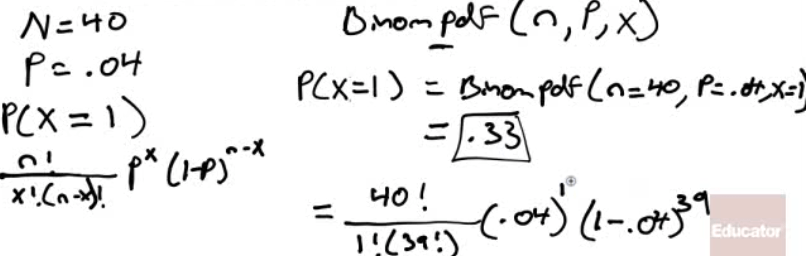 N=40
P=.04
P(X=1)
n!/x!(n-x)! p^x (1-p)^n-x
Binompdf(n,P,x)
P(X=1) = Binompdf(n=40, P=.04,x=1)
= .33
= 40!/1!(39!) (.04)^1 (1-.04)^39
Educator